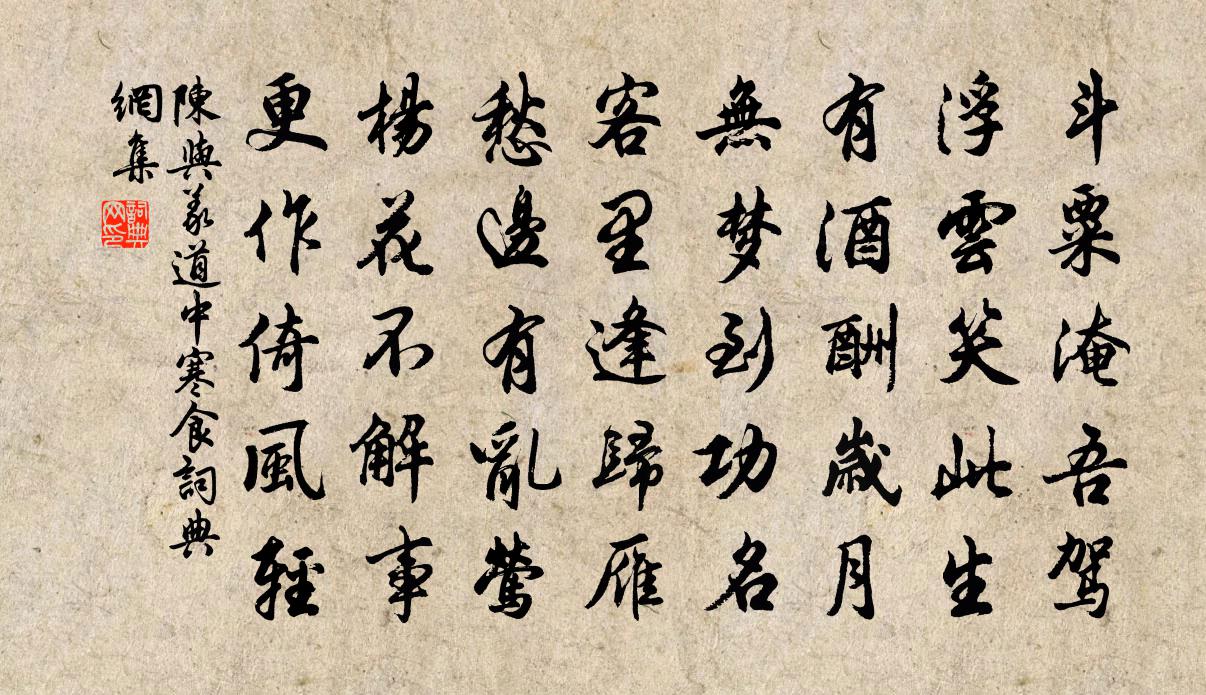 斗粟淹吾驾
浮雲笑此生
有酒酬歲月
無梦到功名
客里逢歸雁
愁邊有亂鶯
楊花不解事
更作倚風輕
陳與義道中寒食詞典
網集
詞典
网印